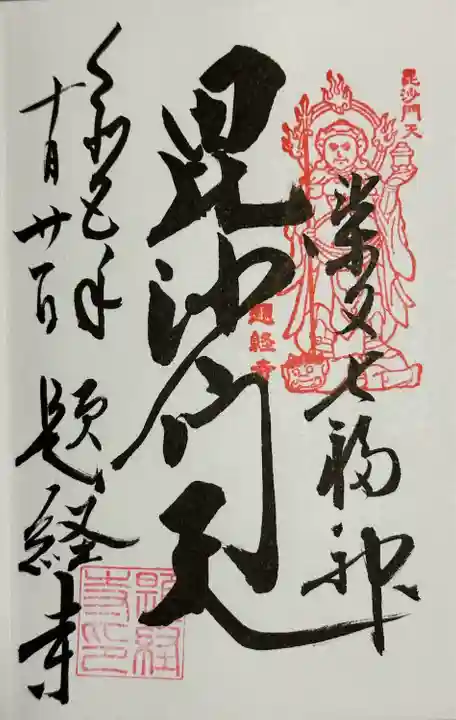 毘沙門天
柴又七福神
題経寺
毘沙門天
令和年
十月廿一日
題経寺
題経寺印